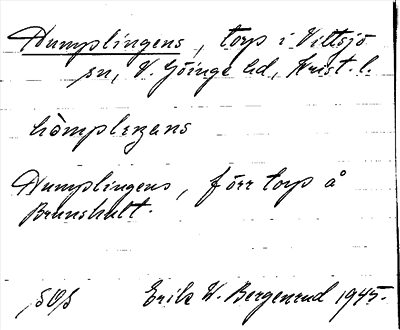 Humplingens, torp i Vittsjö
sn, V. Göinge hd, Krist. l.
hòmpleŋens
Humplingens, förr torp å
Brunshult.
Erik W. Bergenrud 1945.